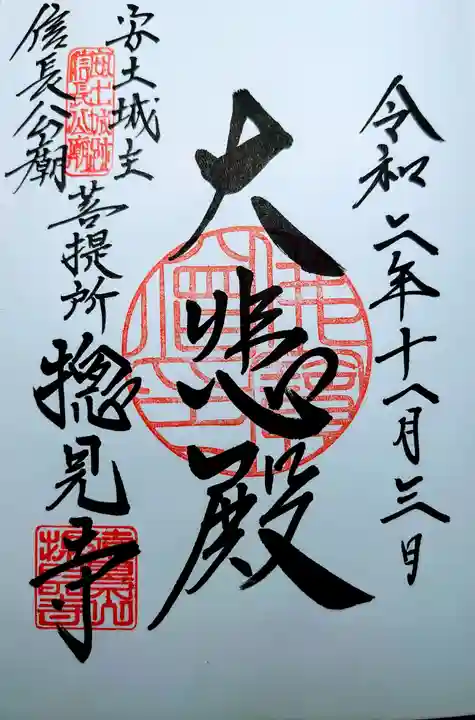 令和六年十月三日
大悲殿
安土城主
信長公廟
菩提所 摠見寺
安土城跡
信長公廟
遠景山
摠見寺